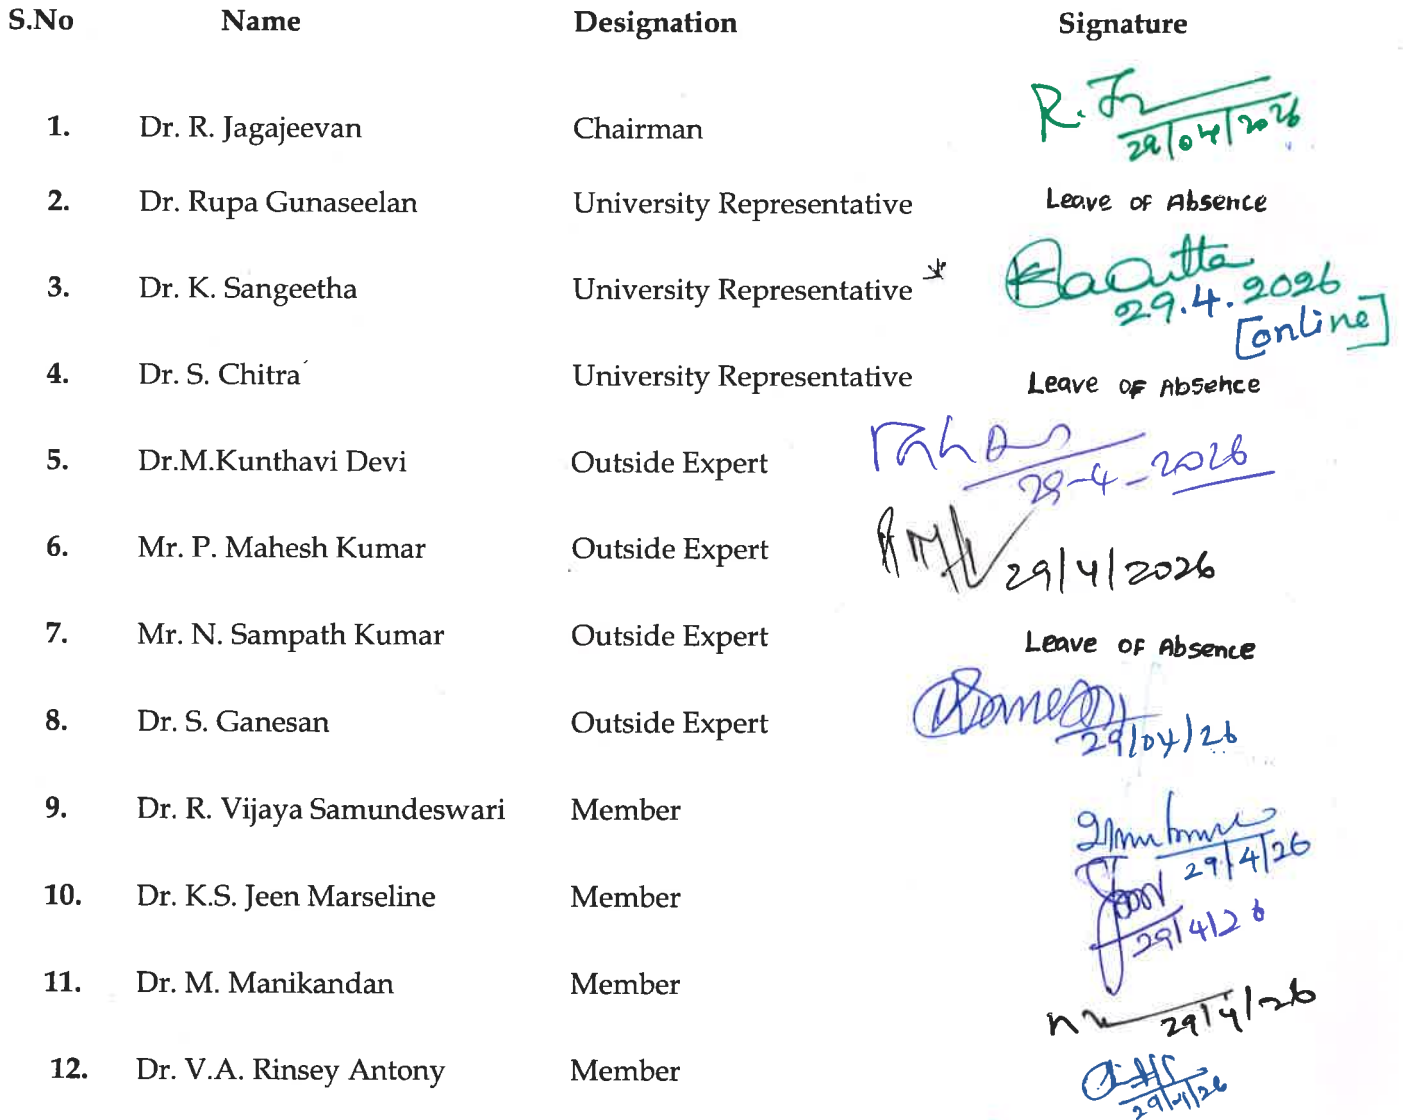 S.No Name Designation Signature
1. Dr. R. Jagajeevan Chairman R. J
29/04/2026
2. Dr. Rupa Gunaseelan University Representative Leave of Absence
3. Dr. K. Sangeetha University Representative *
29.4.2026
[online]
4. Dr. S. Chitra University Representative Leave of Absence
5. Dr.M.Kunthavi Devi Outside Expert
29-4-2026
6. Mr. P. Mahesh Kumar Outside Expert 29/4/2026
7. Mr. N. Sampath Kumar Outside Expert Leave of Absence
8. Dr. S. Ganesan Outside Expert
29/04/26
9. Dr. R. Vijaya Samundeswari Member
29/4/26
10. Dr. K.S. Jeen Marseline Member
29/4/26
11. Dr. M. Manikandan Member
29/4/26
12. Dr. V.A. Rinsey Antony Member
29/4/26